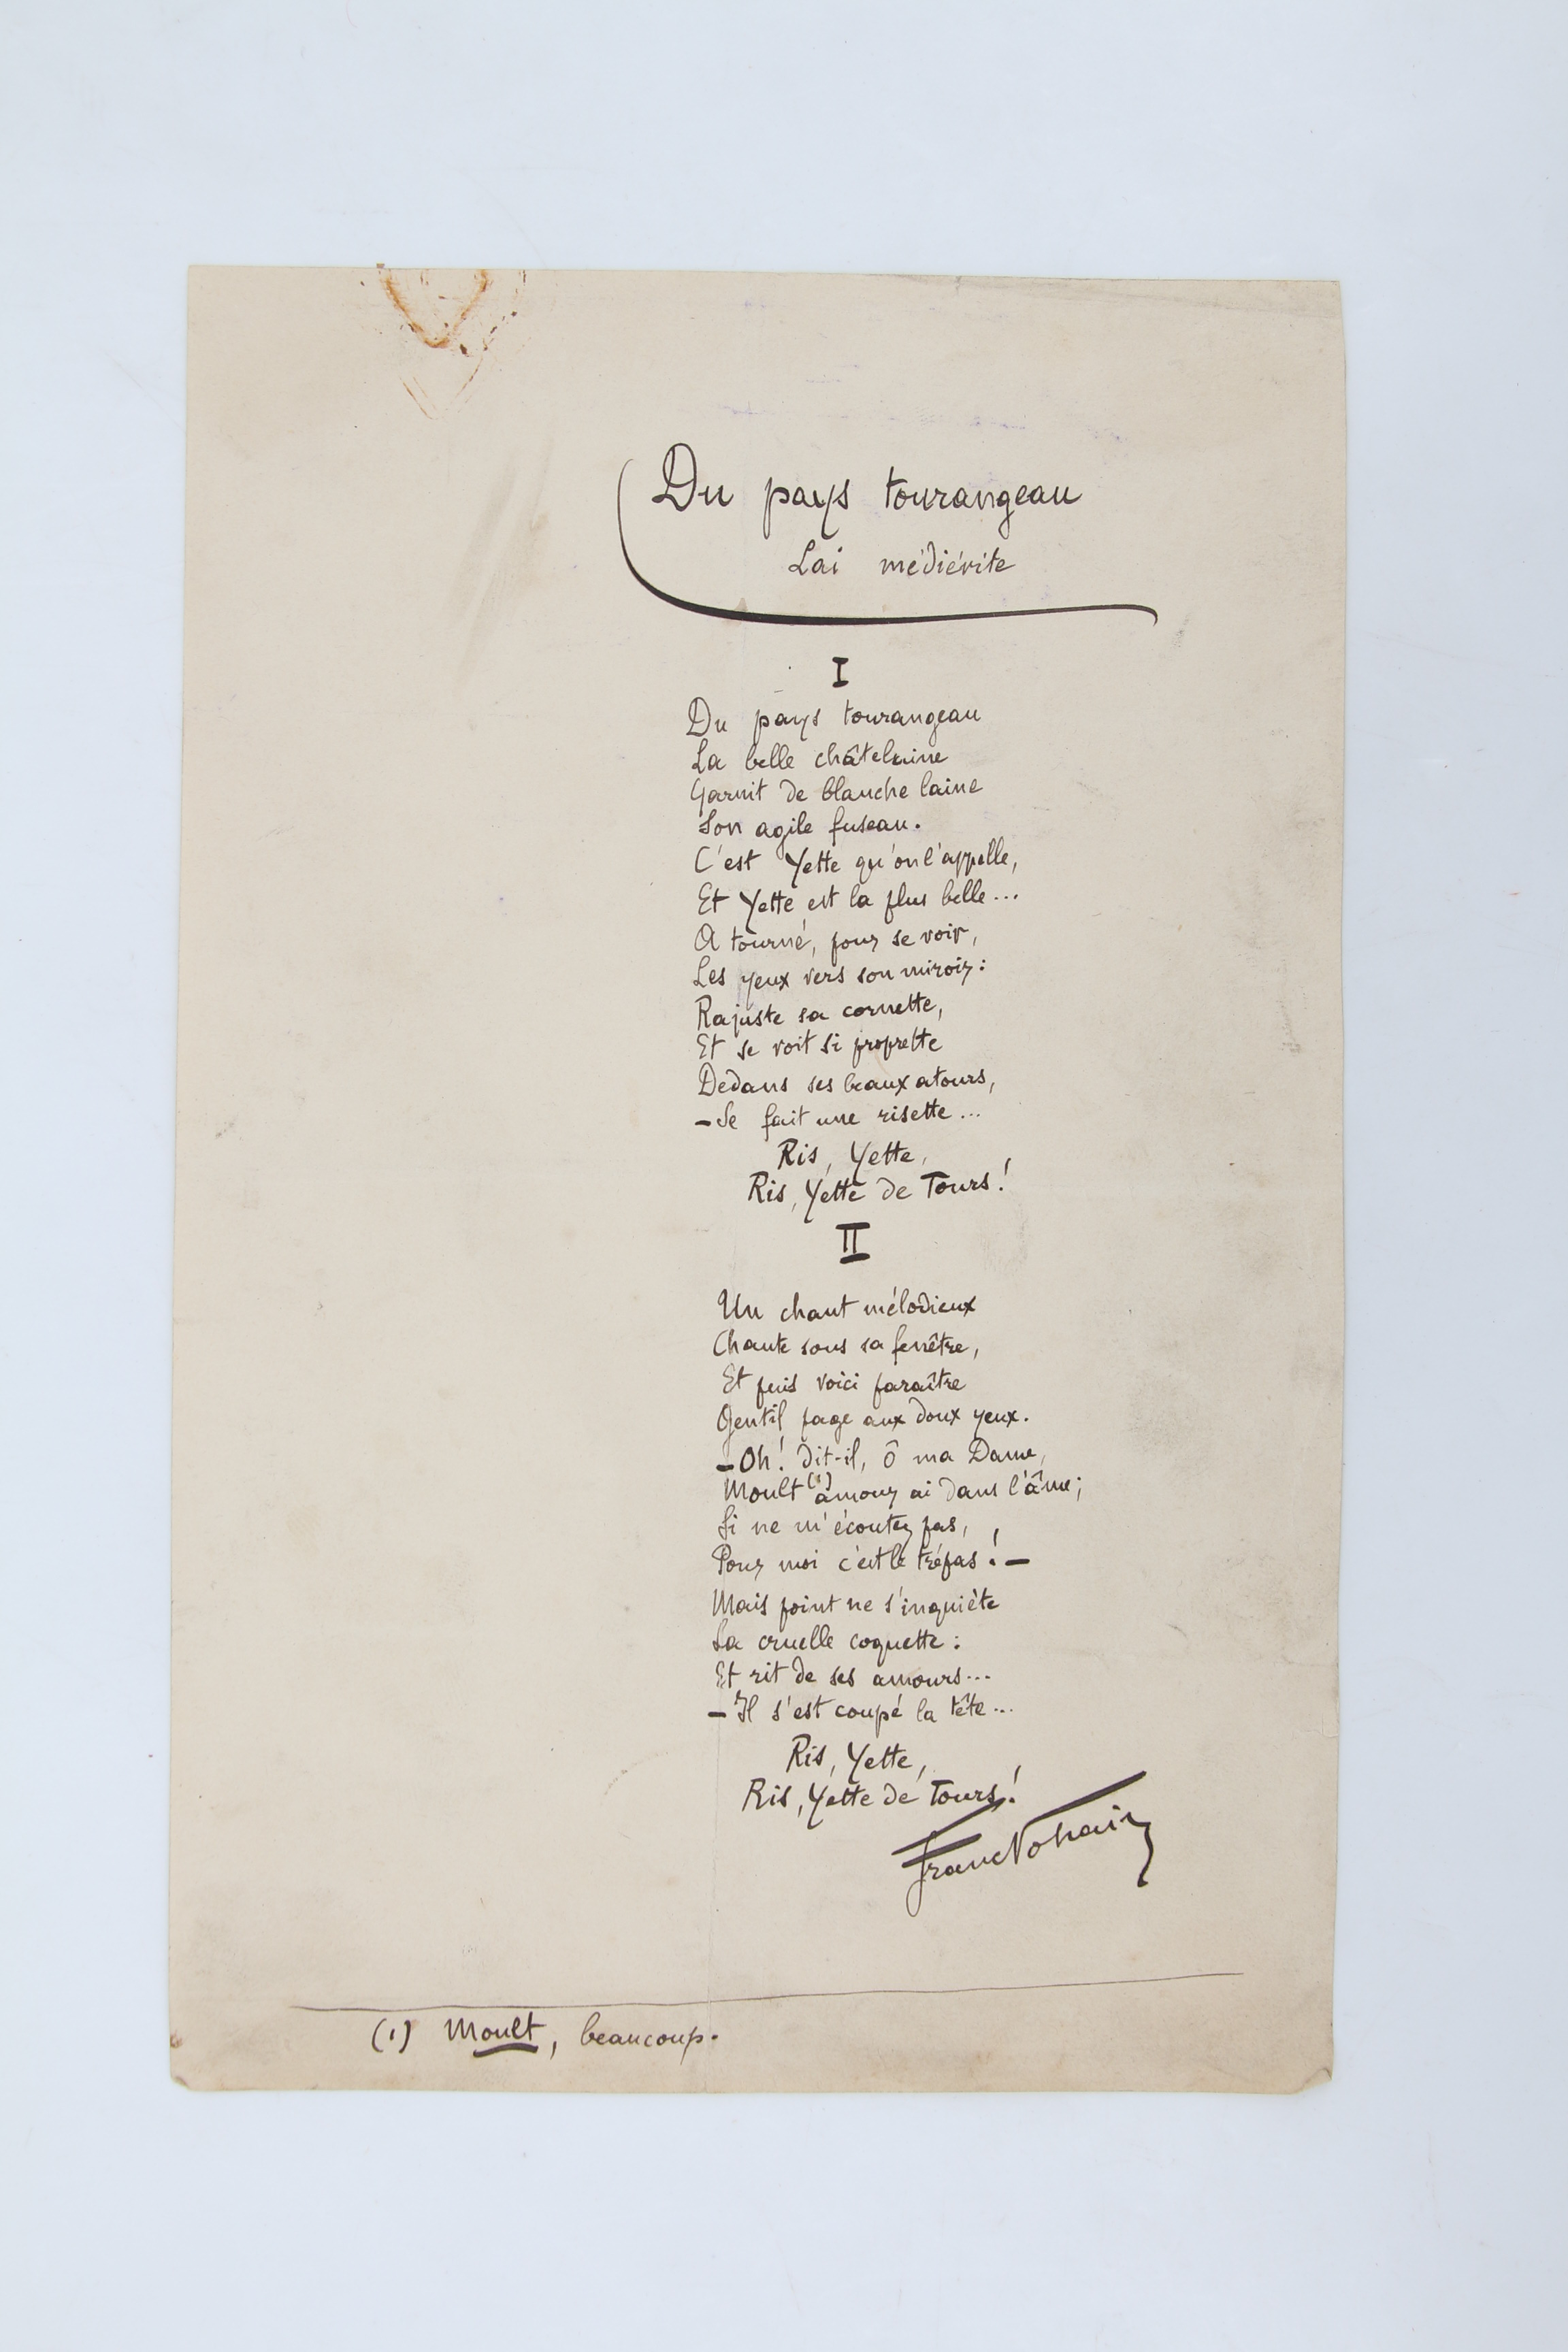 Du pays tourangeau
Lai médiévite
I
Du pays tourangeau
La belle châtelaine
Garnit de blanche laine
Son agile fuseau.
C'est Yette qu'on l'appelle,
Et Yette est la plus belle...
A tourné, pour se voir,
Les yeux vers son miroir:
Rajuste sa cornette,
Et se voit si proprette
Dedans ses beaux atours,
- Se fait une risette...
Ris, Yette,
Ris, Yette de Tours!
II
Un chant mélodieux
Chante sous sa fenêtre,
Et puis voici paraître
Gentil page aux doux yeux.
- Oh! dit-il, ô ma Dame,
Moult (1) amour ai dans l'âme;
Si ne m'écoutez pas,
Pour moi c'est le trépas! -
Mais point ne s'inquiète
La cruelle coquette:
Et rit de ses amours...
- Il s'est coupé la tête...
Ris, Yette,
Ris, Yette de Tours!
Franc Nohain
(1) Moult, beaucoup.